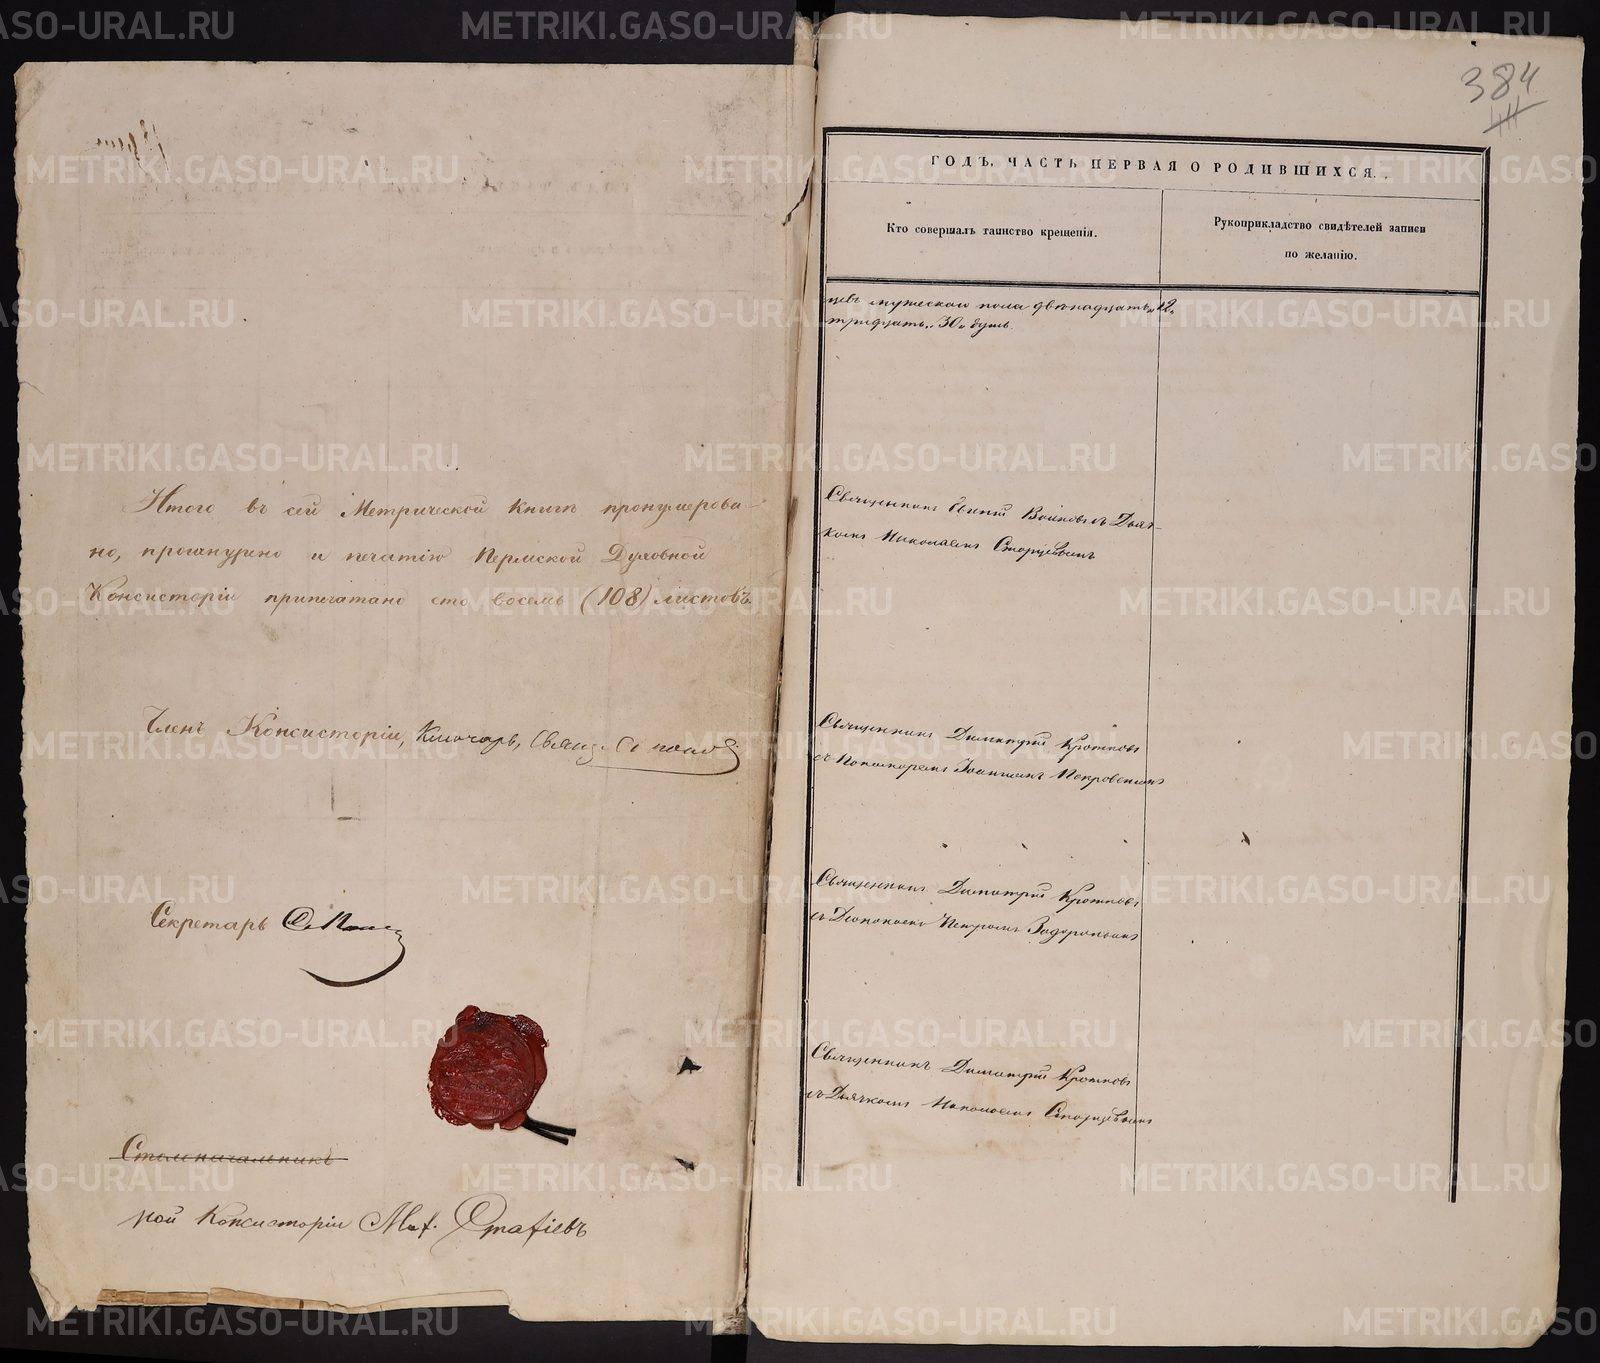 Итого въ сей Метрической книге пронумерова-
но, прошнурено и печатію Пермской Духовной
Консисторіи припечатано сто восемь (108) листовъ.
Членъ Консисторіи, Ключарь, Свящ.
Секретарь
Столоначальникъ
Консисторіи
384
ГОДЪ, ЧАСТЬ ПЕРВАЯ О РОДИВШИХСЯ.
Кто совершалъ таинство крещенія.
Рукоприкладство свидѣтелей записи
по желанію.
мужескаго пола двенадцать „12„
тридцать „30„ душъ.
Священникъ Дьяч-
комъ Николаемъ Старцевымъ
Священникъ Димитрій Кротковъ
съ Пономаремъ Іоанномъ Покровскимъ
Священникъ Димитрій Кротковъ
съ Діакономъ Петромъ
Священникъ Димитрій Кротковъ
съ Дьячкомъ Николаемъ Старцевымъ
METRIKI.GASO-URAL.RU